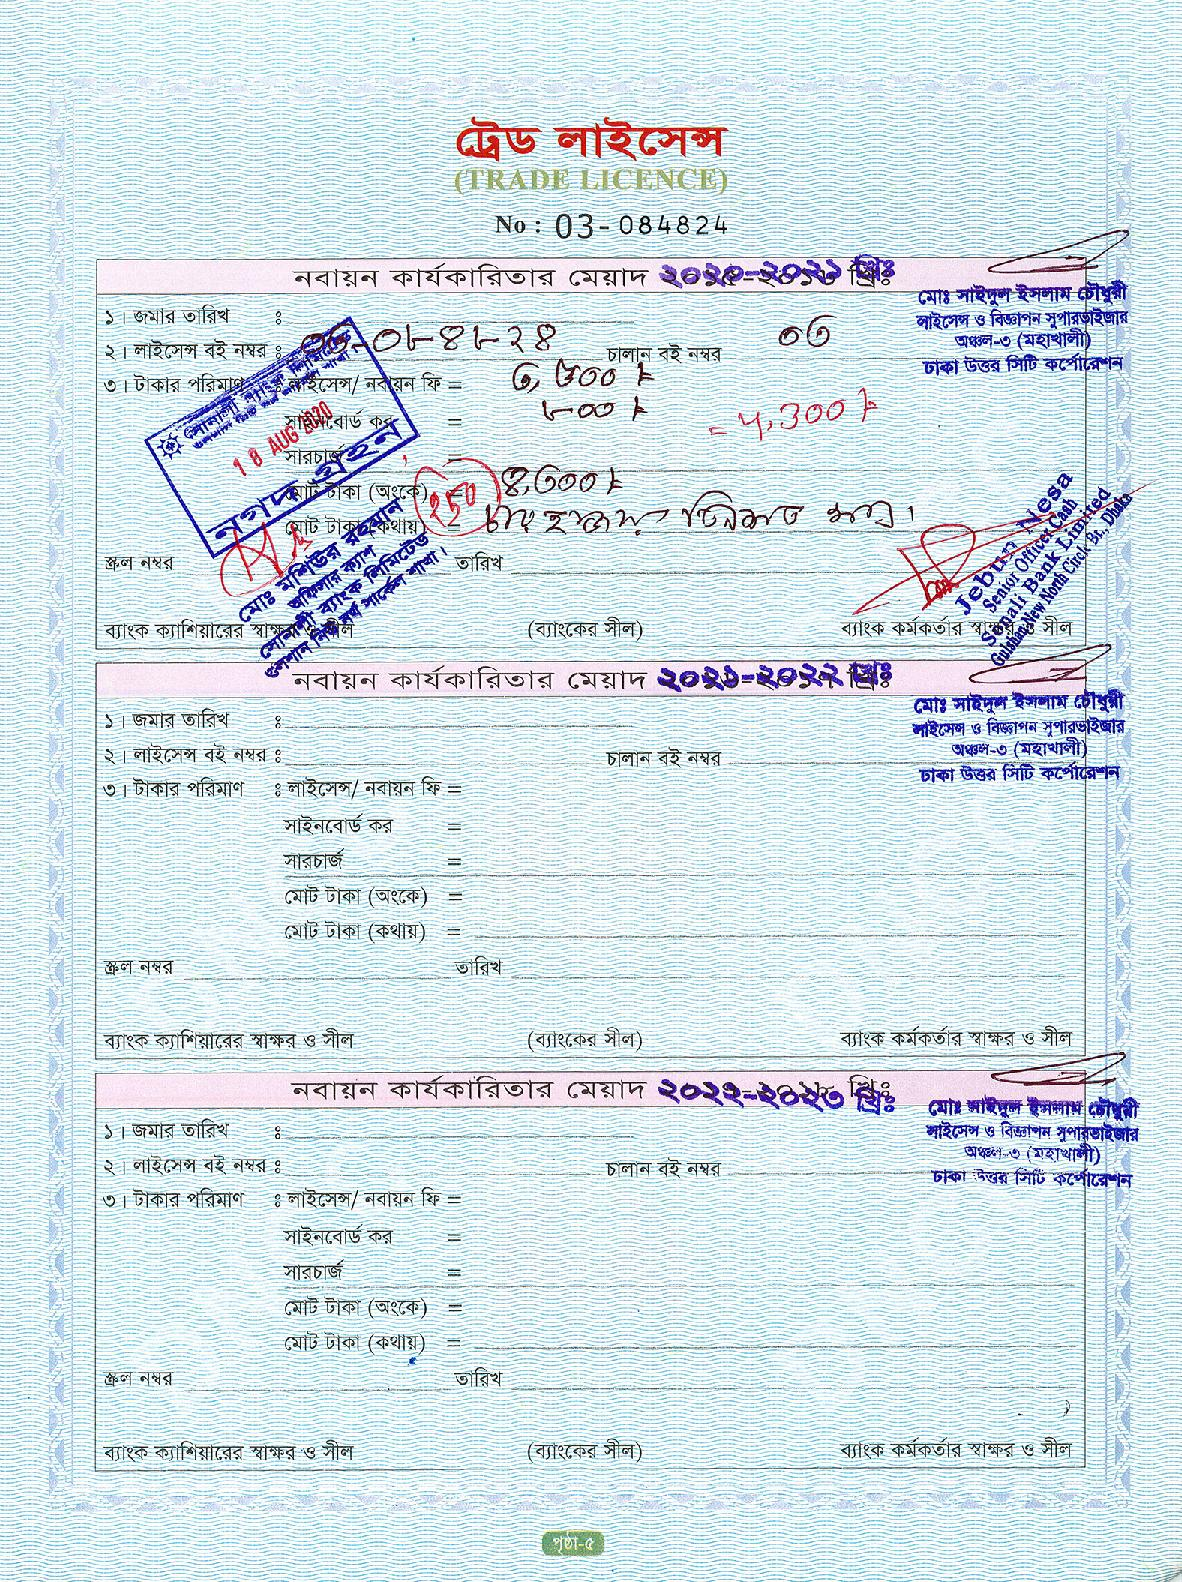 ট্রেড লাইসেন্স
(TRADE LICENCE)
No : 03-084824
নবায়ন কার্যকারিতার মেয়াদ ২০২০-২০২১ খ্রিঃ
মোঃ সাইদুল ইসলাম চৌধুরী
লাইসেন্স ও বিজ্ঞাপন সুপারভাইজার
অঞ্চল-৩ (মহাখালী)
ঢাকা উত্তর সিটি কর্পোরেশন
১। জমার তারিখ :
২। লাইসেন্স বই নম্বর : ০৩-০৮৪৮২৪ চালান বই নম্বর ০৩
৩। টাকার পরিমাণ : লাইসেন্স/ নবায়ন ফি = ৩,৫০০
সাইনবোর্ড কর = ৮০০
= 4,300
সারচার্জ =
মোট টাকা (অংকে) = ৪,৩০০
মোট টাকা (কথায়) = চার হাজার তিনশত মাত্র।
সোনালী ব্যাংক লিমিটেড
18 AUG 2020
নগদ গ্রহন
২৫০
স্ক্রল নম্বর তারিখ
মোঃ মশিউর রহমান
অফিসার ক্যাশ
সোনালী ব্যাংক লিমিটেড
গুলশান নিউ নর্থ সার্কেল শাখা।
Jebun Nesa
Senior Officer Cash
Sonali Bank Limited
Gulshan New North Circle Br. Dhaka
ব্যাংক ক্যাশিয়ারের স্বাক্ষর ও সীল (ব্যাংকের সীল) ব্যাংক কর্মকর্তার স্বাক্ষর ও সীল
নবায়ন কার্যকারিতার মেয়াদ ২০২১-২০২২ খ্রিঃ
মোঃ সাইদুল ইসলাম চৌধুরী
লাইসেন্স ও বিজ্ঞাপন সুপারভাইজার
অঞ্চল-৩ (মহাখালী)
ঢাকা উত্তর সিটি কর্পোরেশন
১। জমার তারিখ :
২। লাইসেন্স বই নম্বর : চালান বই নম্বর
৩। টাকার পরিমাণ : লাইসেন্স/ নবায়ন ফি =
সাইনবোর্ড কর =
সারচার্জ =
মোট টাকা (অংকে) =
মোট টাকা (কথায়) =
স্ক্রল নম্বর তারিখ
ব্যাংক ক্যাশিয়ারের স্বাক্ষর ও সীল (ব্যাংকের সীল) ব্যাংক কর্মকর্তার স্বাক্ষর ও সীল
নবায়ন কার্যকারিতার মেয়াদ ২০২২-২০২৩ খ্রিঃ
মোঃ সাইদুল ইসলাম চৌধুরী
লাইসেন্স ও বিজ্ঞাপন সুপারভাইজার
অঞ্চল-৩ (মহাখালী)
ঢাকা উত্তর সিটি কর্পোরেশন
১। জমার তারিখ :
২। লাইসেন্স বই নম্বর : চালান বই নম্বর
৩। টাকার পরিমাণ : লাইসেন্স/ নবায়ন ফি =
সাইনবোর্ড কর =
সারচার্জ =
মোট টাকা (অংকে) =
মোট টাকা (কথায়) =
স্ক্রল নম্বর তারিখ
ব্যাংক ক্যাশিয়ারের স্বাক্ষর ও সীল (ব্যাংকের সীল) ব্যাংক কর্মকর্তার স্বাক্ষর ও সীল
পৃষ্ঠা-৫